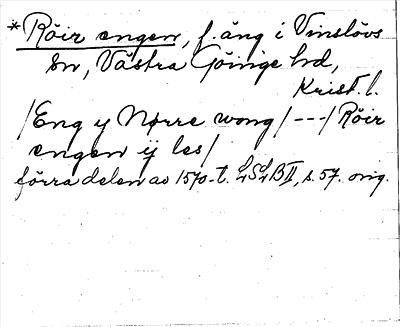 *Röir engen, f. äng i Vinslövs
sn, Västra Göinge hd,
Krist. l.
/Eng y Nørre wong/---/Röir
engen ij les/
förra delen av 1570-t. LSLB II, s. 57. orig.